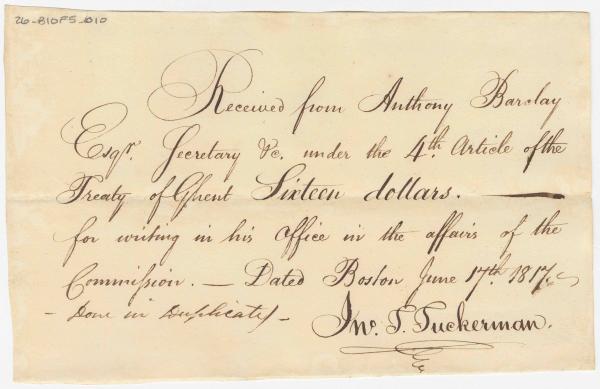 26-B10F5-010
Received from Anthony Barclay
Esqr. Secretary &c. under the 4th. Article of the
Treaty of Ghent Sixteen dollars. —
for writing in his office in the affairs of the
Commission. — Dated Boston June 17th. 1817.
- Done in Duplicates -
Jno. T. Tuckerman.